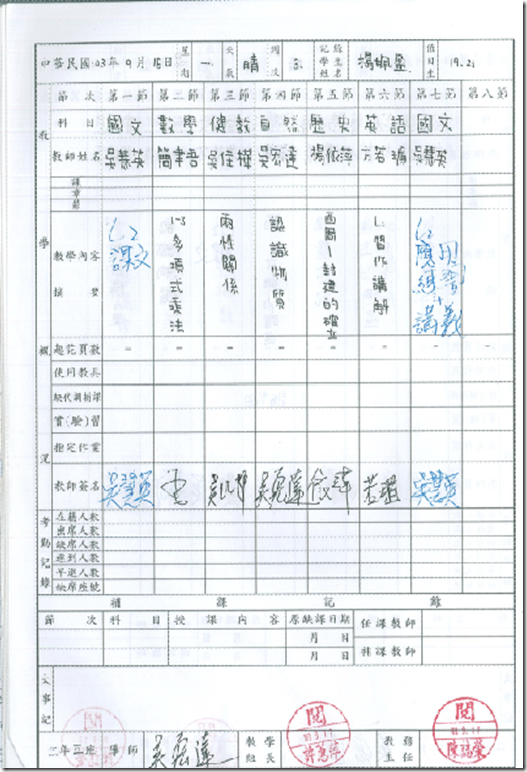 中華民國103年9月15日 星期 一 天氣 晴 週次 3 記錄學生姓名 值日生 19.21
節次 第一節 第二節 第三節 第四節 第五節 第六節 第七節 第八節
科目 國文 數學 健教 自然 歷史 英語 國文
教師姓名 吳慧英 簡聿吾 吳佳樺 吳宏達 楊依萍 方若瑀 吳慧英
課章節
教學內容摘要 L2課文 1-3多項式乘法 兩性關係 認識物質 西周-封建的確立 L1習作講解 L2應用練習+講義
教學概況
起訖頁數 - - - - - - - -
使用教具
缺代調補課
實(驗)習
指定作業
教師簽名 吳慧英 吳宏達 依萍 若瑀 吳慧英
考勤記錄
在籍人數
出席人數
缺席人數
遲到人數
早退人數
缺席座號
補課記錄
節次 科目 授課內容 原缺課日期 任課教師
月 日
月 日 補課教師
記事
二年三班 導師 吳宏達 教學組長 閱 教務主任 閱